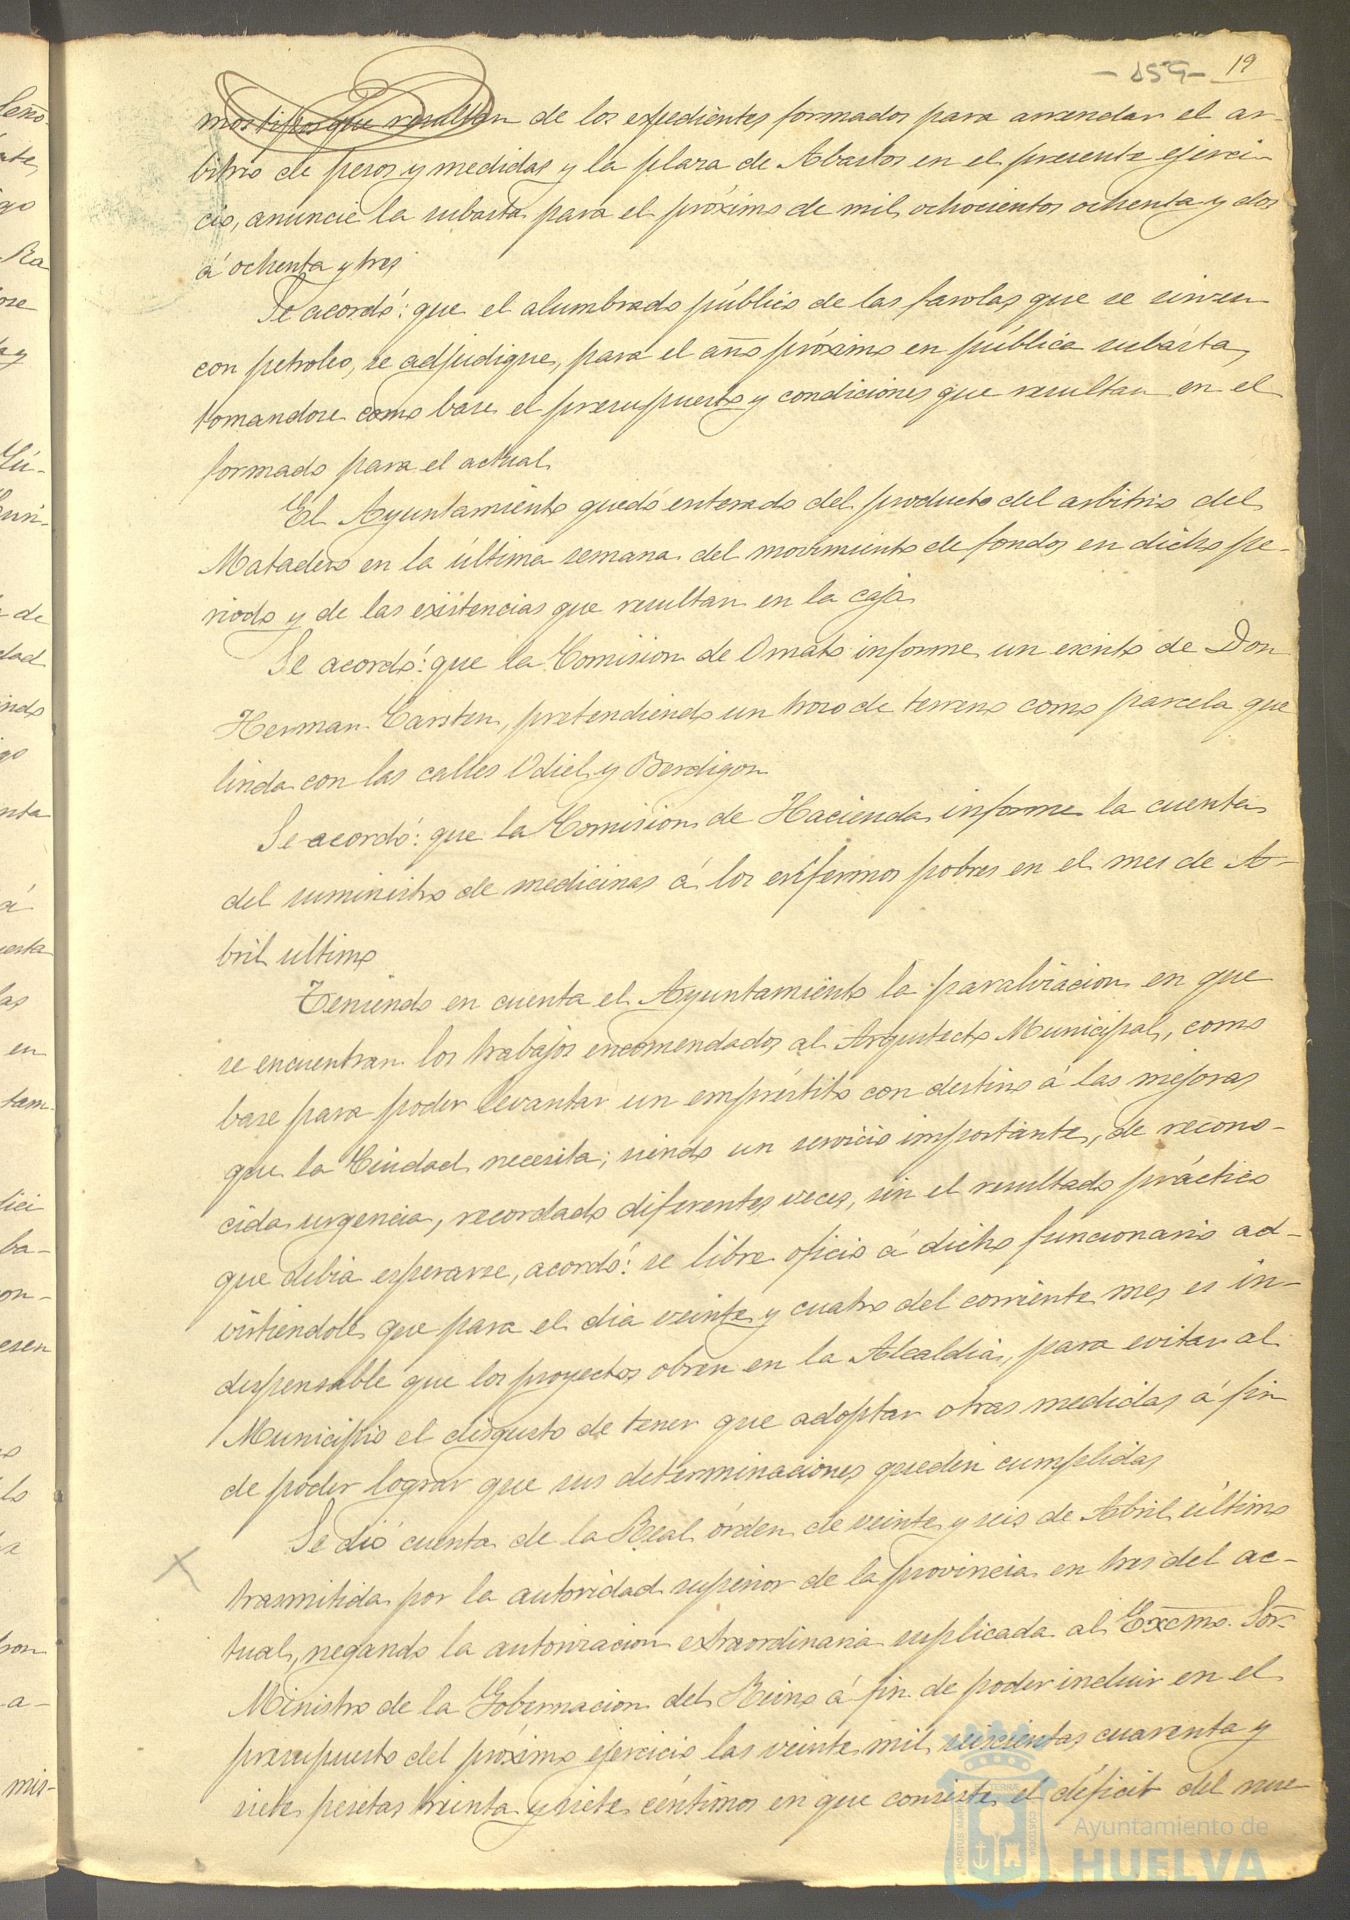 - 159 - 19
mos tipos que resultan de los expedientes formados para arrendar el ar-
bitrio de pesos y medidas y la plaza de Abastos en el presente ejerci-
cio, anuncie la subasta para el próximo de mil ochocientos ochenta y dos
á ochenta y tres
Se acordó: que el alumbrado público de las farolas que se sirven
con petroleo, se adjudique, para el año próximo en pública subásta,
tomandose como base el presupuesto y condiciones que resultan en el
formado para el actual
El Ayuntamiento quedó enterado del producto del arbitrio del
Matadero en la última semana del movimiento de fondos en dicho pe-
riodo y de las existencias que resultan en la caja
Se acordó: que la Comision de Ornato informe un escrito de Don
Herman Carsten, pretendiendo un trozo de terreno como parcela que
linda con las calles Odiel y Berdigon
Se acordó: que la Comision de Hacienda informe la cuenta
del suministro de medicinas á los enfermos pobres en el mes de A-
bril ultimo
Teniendo en cuenta el Ayuntamiento la paralizacion en que
se encuentran los trabajos encomendados al Arquitecto Municipal, como
base para poder levantar un empréstito con destino á las mejoras
que la Ciudad necesita; siendo un servicio importante, de recono-
cida urgencia, recordado diferentes veces, sin el resultado práctico
que debia esperarse, acordó: se libre oficio á dicho funcionario ad-
virtiendole que para el dia veinte y cuatro del corriente mes es in-
dispensable que los proyectos obren en la Alcaldia, para evitar al
Municipio el disgusto de tener que adoptar otras medidas á fin
de poder lograr que sus determinaciones queden cumplidas
Se dió cuenta de la Real órden de veinte y seis de Abril último
trasmitida por la autoridad superior de la provincia en tres del ac-
tual, negando la autorizacion extraordinaria suplicada al Excmo. Sor.
Ministro de la Gobernacion del Reino á fin de poder incluir en el
presupuesto del próximo ejercicio las veinte mil seiscientas cuarenta y
siete pesetas treinta y siete céntimos en que consiste el déficit del nue
Ayuntamiento de
HUELVA